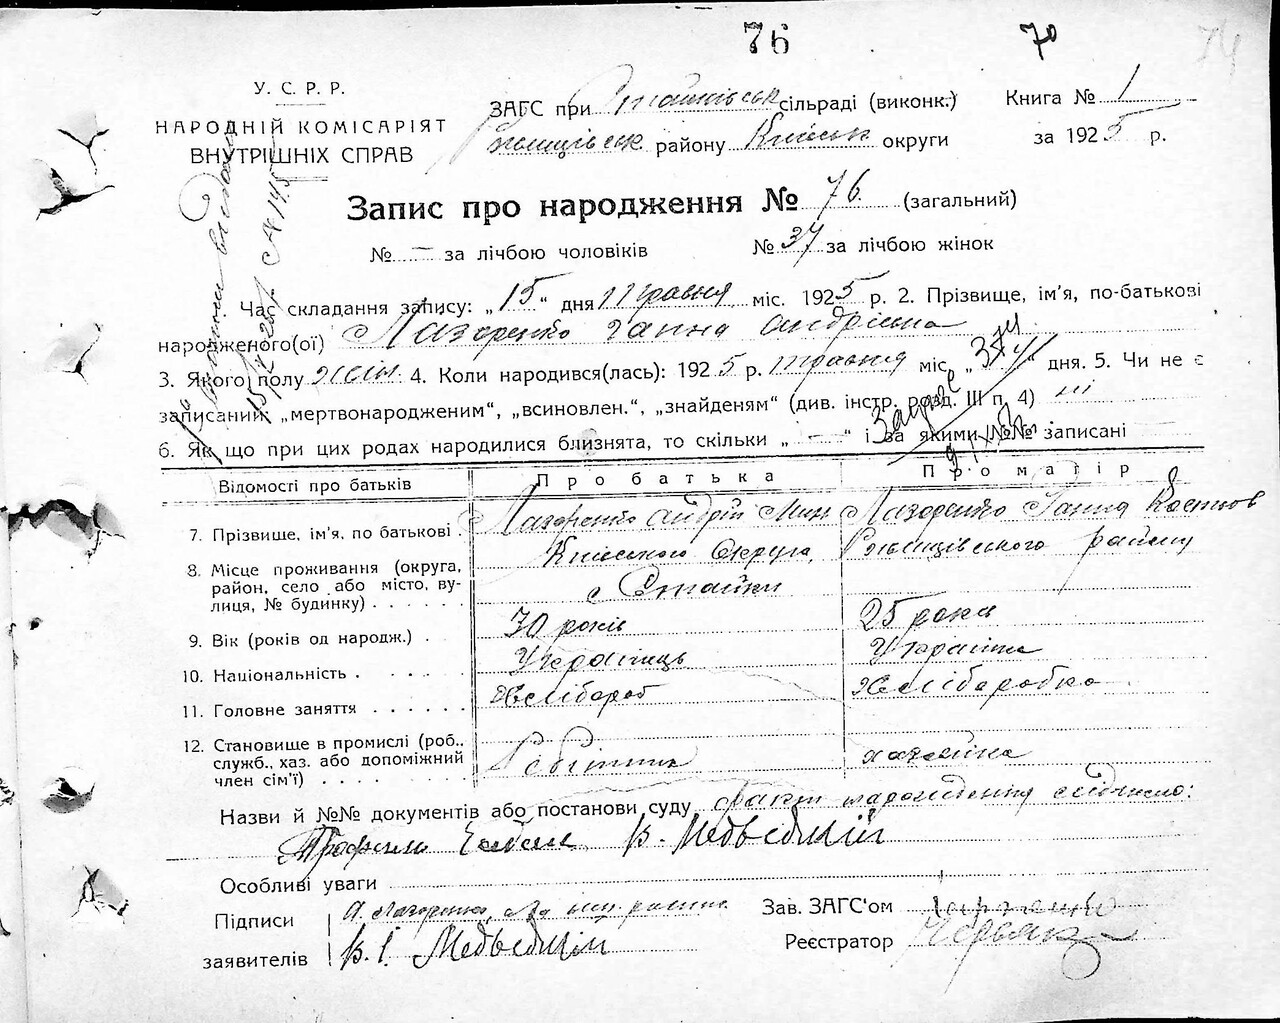 76 70 74
У. С. Р. Р.
НАРОДНІЙ КОМІСАРІЯТ
ВНУТРІШНІХ СПРАВ
ЗАГС при Стайківськ сільраді (виконк.)
Ржищівськ району Київськ округи
Книга № 1
за 1925 р.
Запис про народження № 76. (загальний)
№ — за лічбою чоловіків № 37 за лічбою жінок
Час складання запису: „15" дня травня міс. 1925 р. 2. Прізвище, ім'я, по-батькові
народженого(ої) Лазаренко Ганна Андріївна
3. Якого полу жін. 4. Коли народився(лась): 1925 р. травня міс. „3" дня. 5. Чи не є
записаний „мертвонародженим", „всиновлен.", „знайденям" (див. інстр. розд. III п. 4) ні
6. Як що при цих родах народилися близнята, то скільки „—" і за якими №№ записані
Відомості про батьків Про батька Про матір
7. Прізвище, ім'я, по батькові . Лазаренко Андрій Мин Лазаренко Ганна Костьов
8. Місце проживання (округа, район, село або місто, вулиця, № будинку) . . . . . . Київського Округа, Ржищівського району
с Стайки
9. Вік (років од народж.) . 30 років 25 років
10. Національність . . . . . Українець Українка
11. Головне заняття . . . . . . Хлібороб Хліборобка
12. Становище в промислі (роб., служб., хаз. або допоміжний член сім'ї) . . . . . хазяйка
Назви й №№ документів або постанови суду факт народження свідчило:
В. Медведицій
Особливі уваги
Підписи А. Лазаренко, Зав. ЗАГС'ом
заявителів В. І. Медведицій Реєстратор Червяк